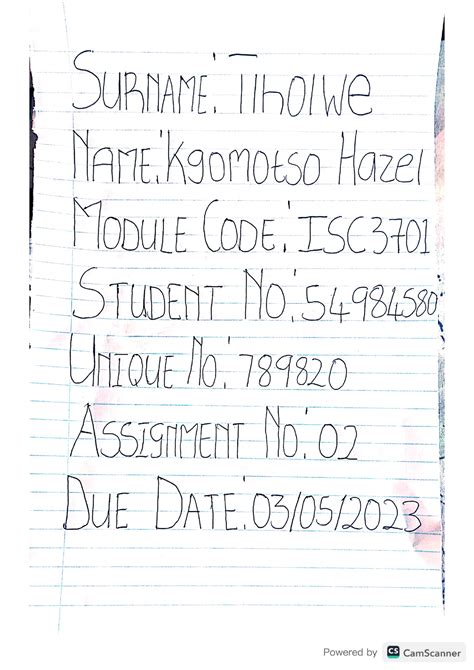 SURNAME: Tlholwe
NAME: Kgomotso Hazel
MODULE CODE: ISC3701
STUDENT NO: 54984580
UNIQUE NO: 789820
ASSIGNMENT NO: 02
DUE DATE: 03/05/2023
Powered by CS CamScanner